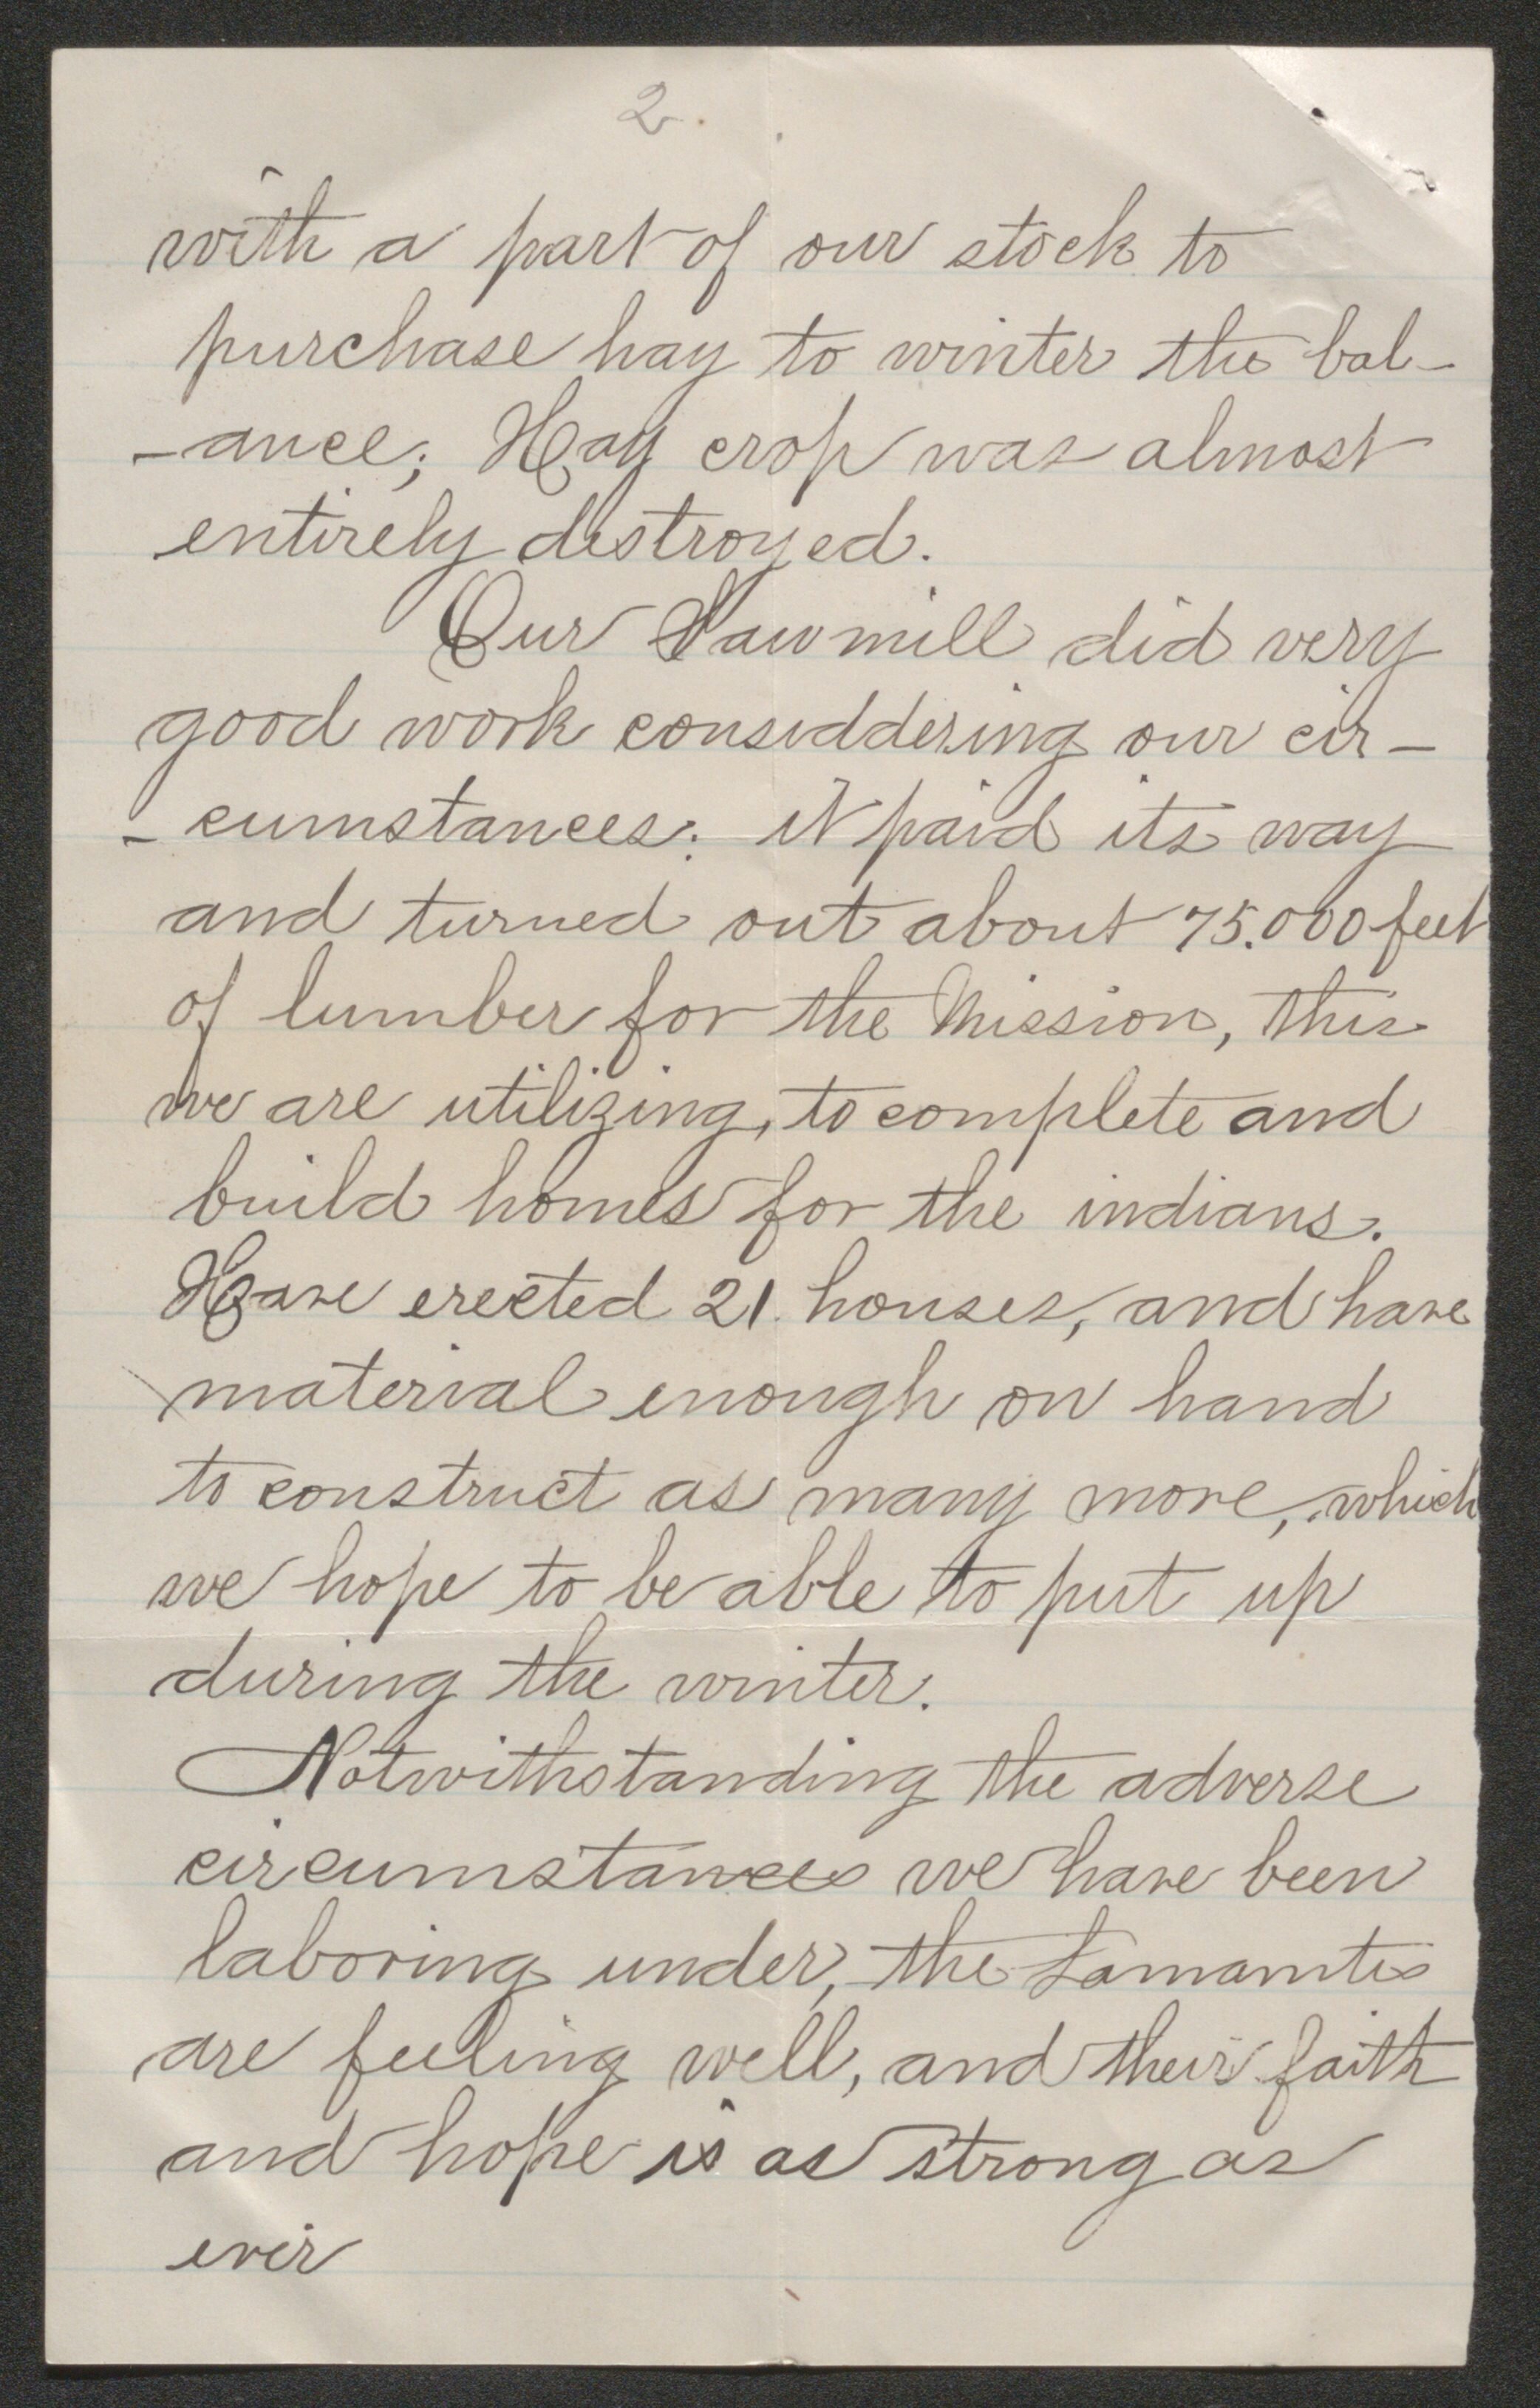 2.
with a part of our stock to
purchase hay to winter the bal-
-ance; Hay crop was almost
entirely destroyed.
Our Sawmill did very
good work considdering our cir-
-cumstances: it paid its way
and turned out about 75.000 feet
of lumber for the Mission, this
we are utilizing, to complete and
build homes for the indians.
Have erected 21. houses, and have
material enough on hand
to construct as many more, which
we hope to be able to put up
during the winter.
Notwithstanding the adverse
circumstances we have been
laboring under, the Lamanites
are feeling well, and their faith
and hope is as strong as
ever